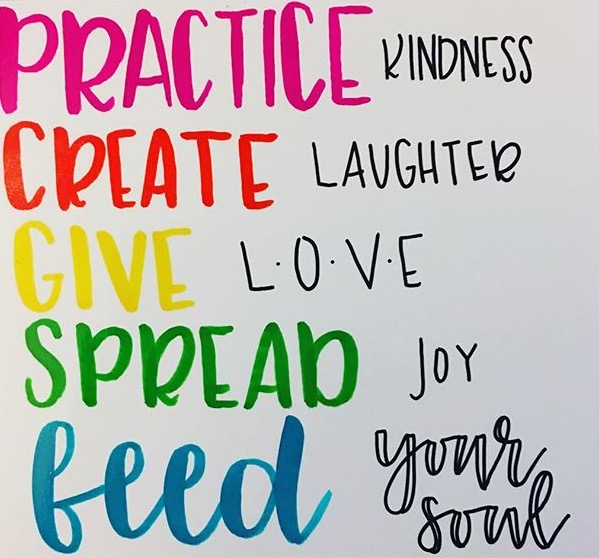 PRACTICE KINDNESS
CREATE LAUGHTER
GIVE L·O·V·E
SPREAD JOY
feed your
soul